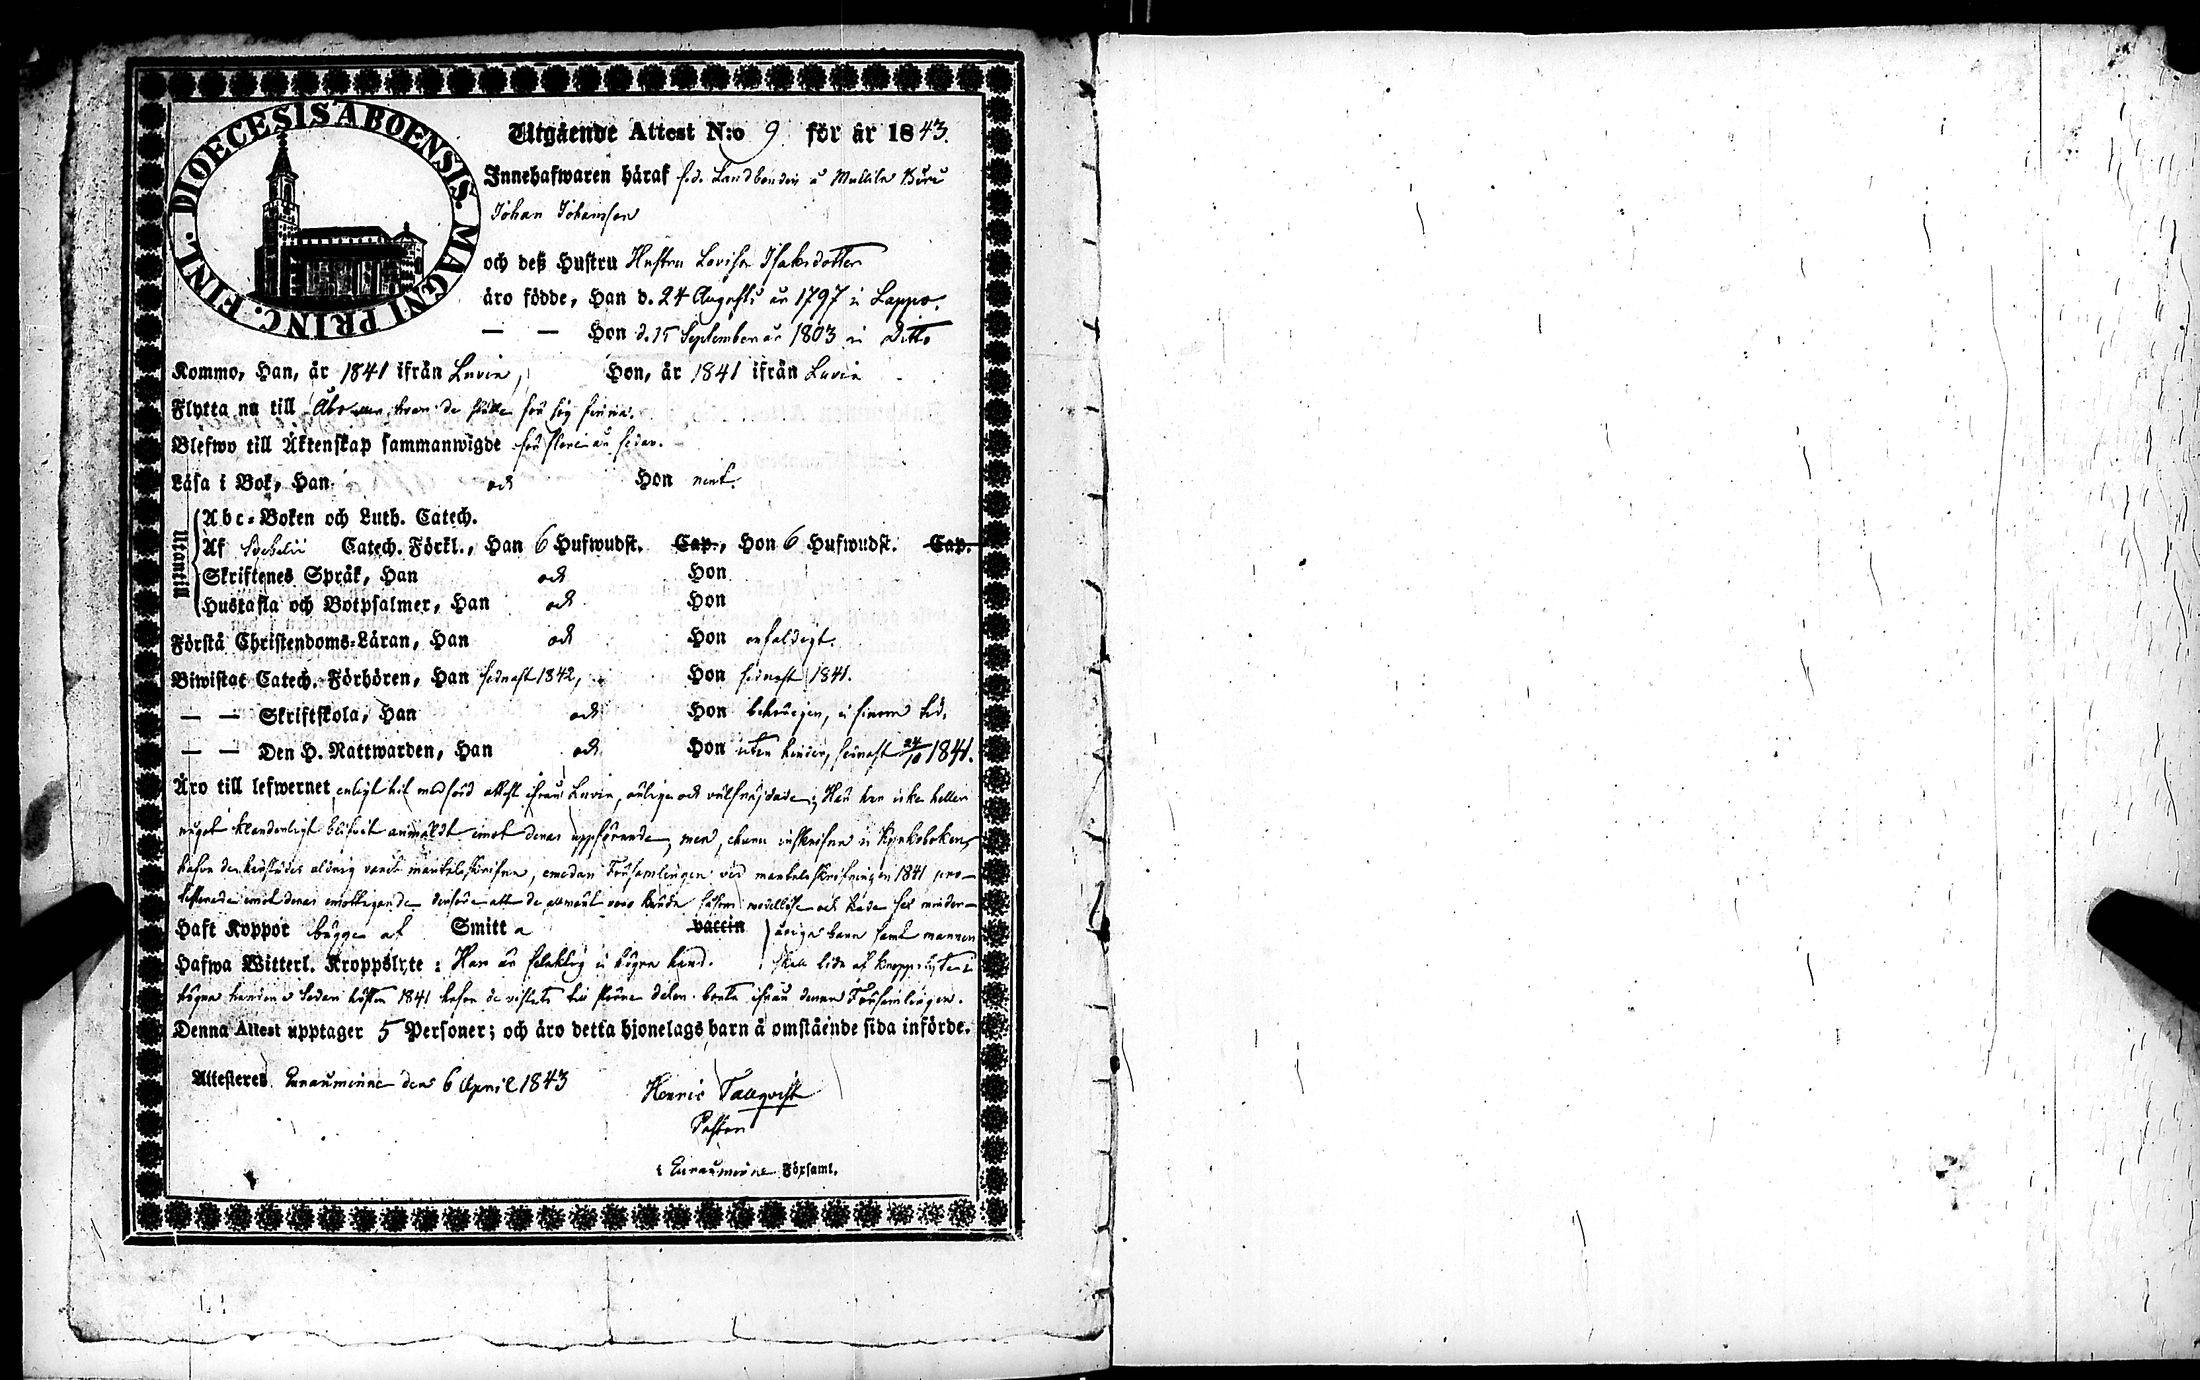 DIOECESIS ABOENSIS. MAGNI PRINC. FINL.
Utgående Attest N:o 9 för år 1843.
Innehafwaren häraf Landbonden å Mullila Büri
Johan Johansson
och deß Hustru Hustru Lovisa Isaksdotter
äro födde, Han d. 24 Augusti år 1797 i Lappo.
— — Hon d. 15 September år 1803 i Ditto
Kommo, Han, år 1841 ifrån Luvia, Hon, år 1841 ifrån Luvia
Flytta nu till Åbo der de för sig
Blefwo till Äktenskap sammanwigde för flere år sedan.
Läsa i Bok, Han och Hon rent.
Utantill
Abc-Boken och Luth. Catech.
Af Svebelii Catech. Förkl., Han 6 Hufwudst. Cap., Hon 6 Hufwudst. Cap.
Skriftenes Språk, Han och Hon
Hustafla och Botpsalmer, Han och Hon
Förstå Christendoms-Läran, Han och Hon enfaldigt.
Biwistat Catech. Förhören, Han sednast 1842, Hon sednast 1841.
— — Skriftskola, Han och Hon behörigen, i sinom tid.
— — Den H. Nattwarden, Han och Hon utan hinder, sednast 24/10 1841.
Äro till lefwernet enligt hit medförd attest ifrån Luvia, ärlige och välfräjdade; Här har icke heller
något klanderligt blifvit anmäldt emot deras uppförande, men, ehuru inskrifne i Kyrkoboken,
hafva de härstädes aldrig varit mantalsskrifne, emedan Församlingen vid mantalsskrifningen 1841 pro-
testerade emot deras emottagande derföre att de allmänt voro kände såsom medellöse och hade sex minder-
Haft Koppor begge af Smitta vaccin åriga barn samt mannen
Hafwa Witterl. Kroppslyte: Han är felaktig i högra hand. skall lida af kroppslyte i
högra handen. Sedan hösten 1841 hafva de vistats till större delen borta ifrån denna Församlingen.
Denna Attest upptager 5 Personer; och äro detta hjonelags barn å omstående sida införde.
Attesteres Euraåminne den 6 April 1843
Henric Tallqvist
Pastor
i Euraåminne Församl.